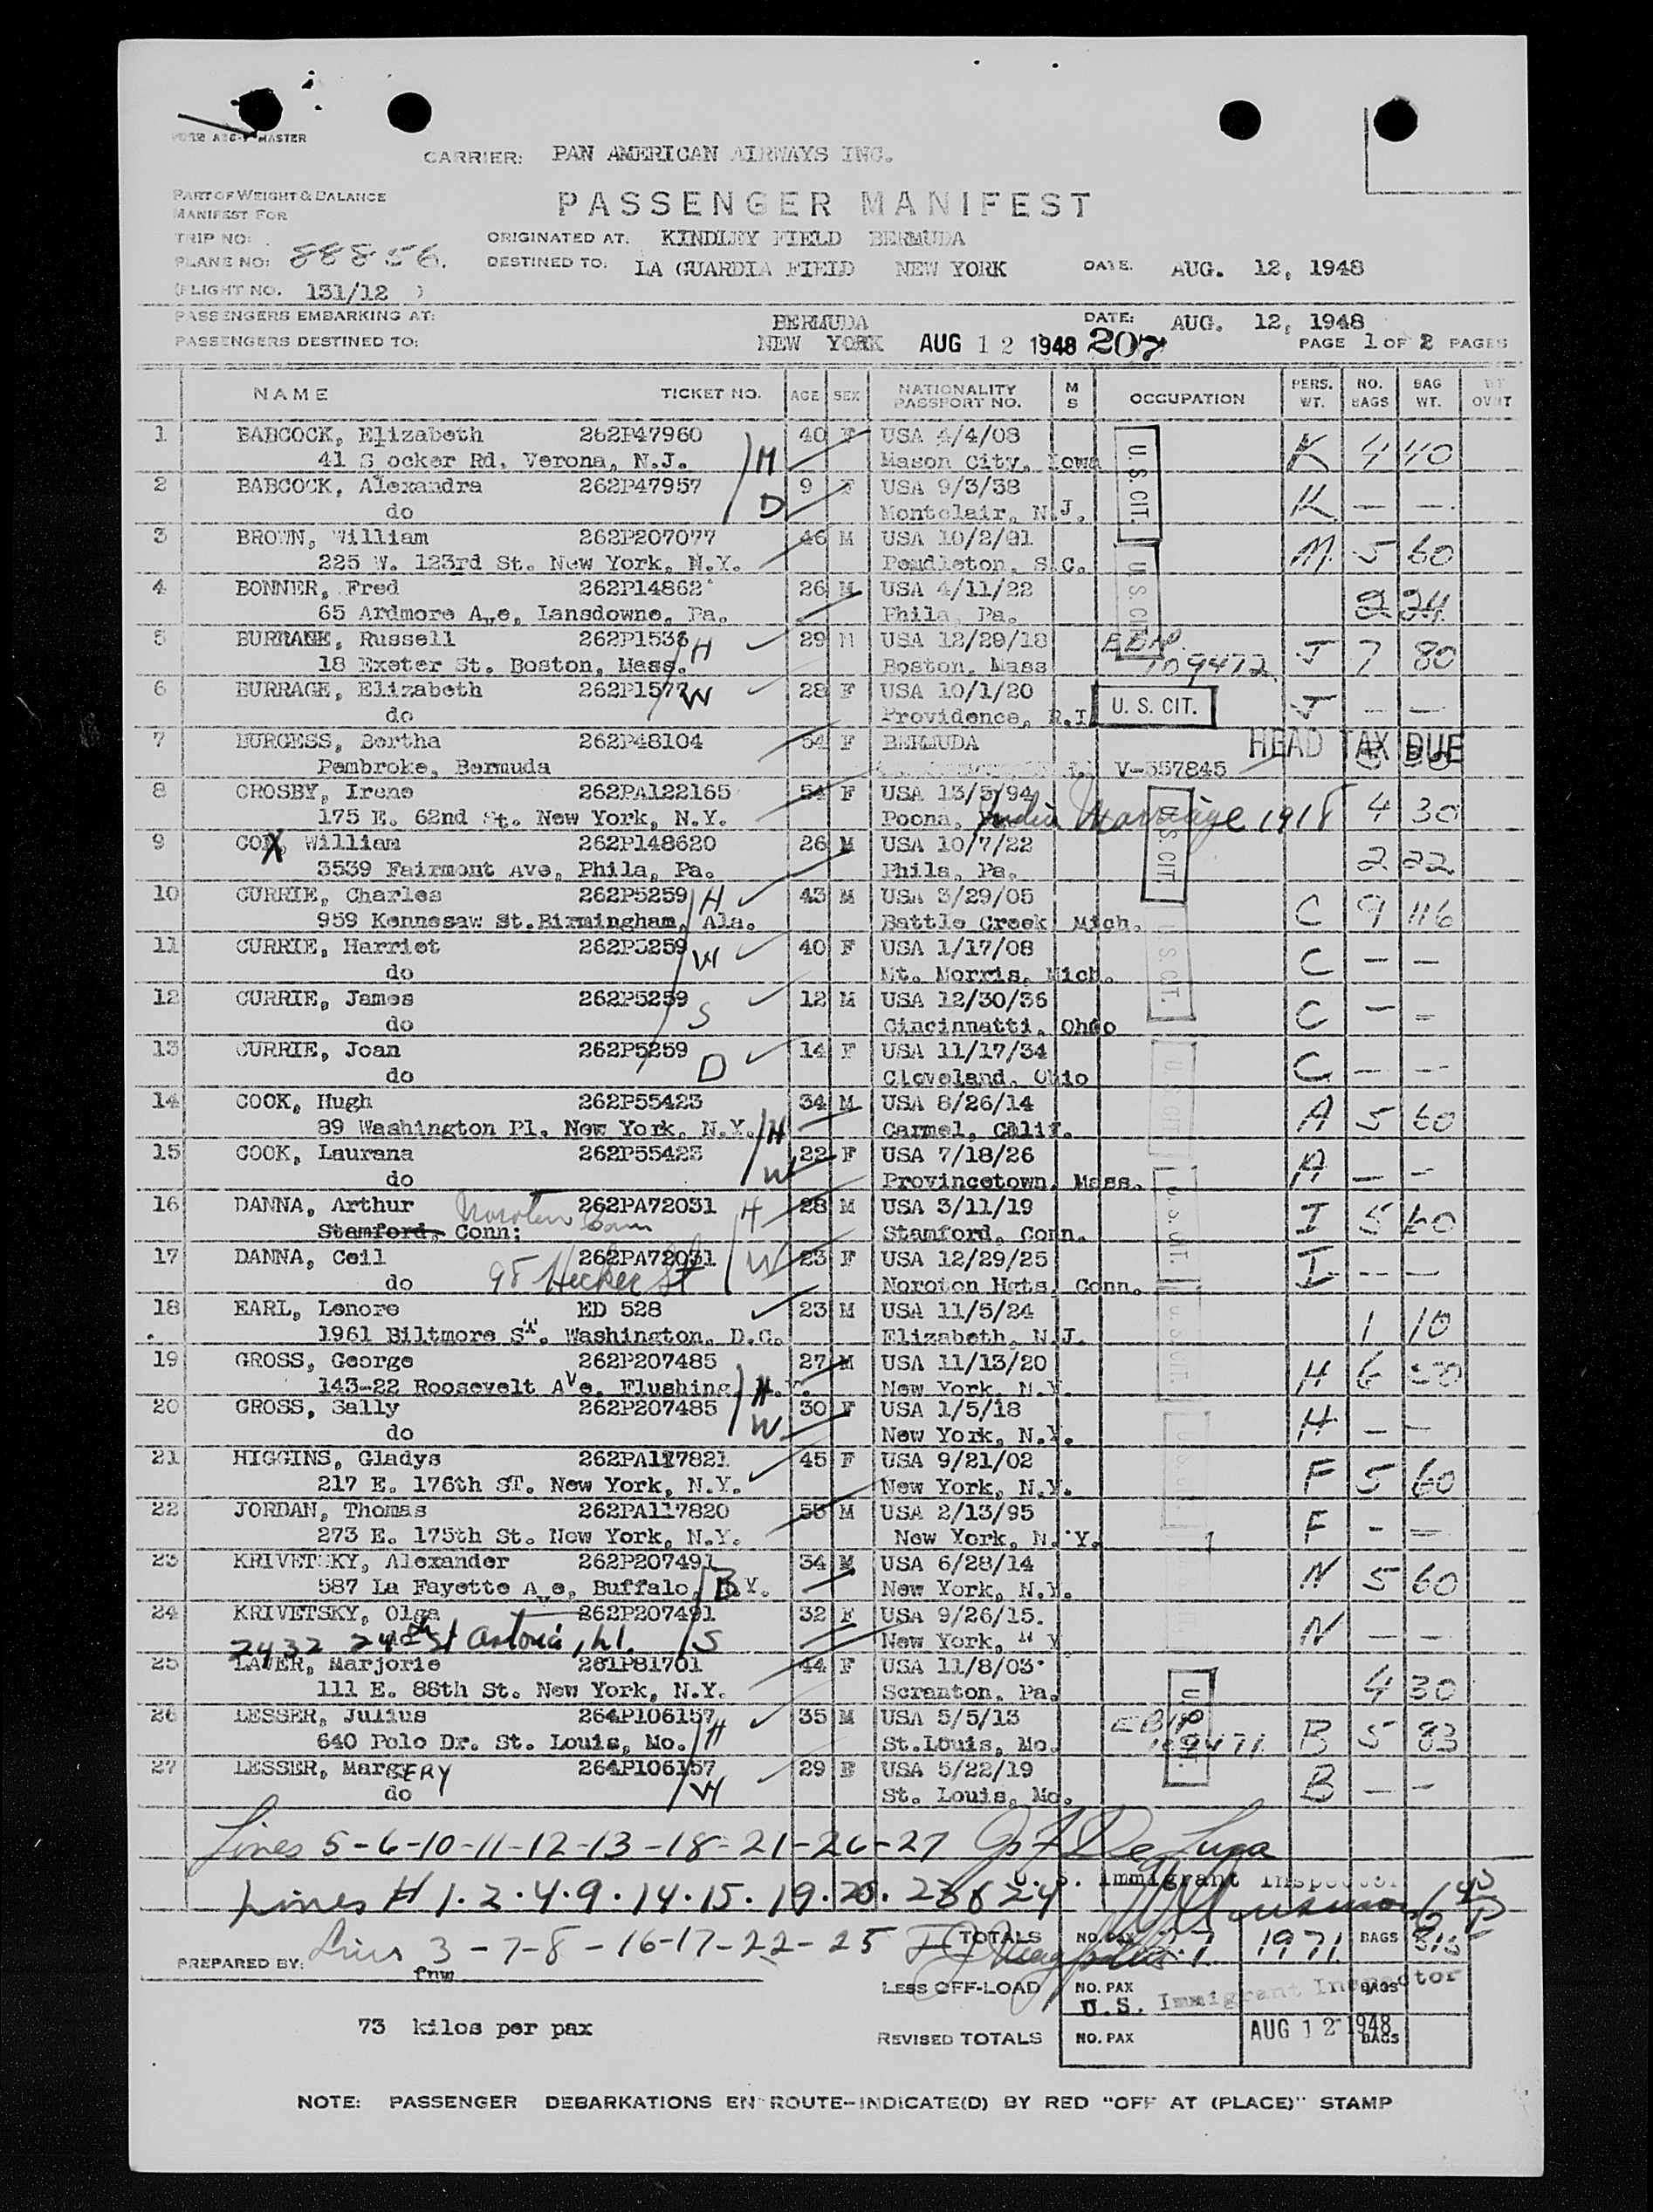 FORM ABC-1 MASTER
CARRIER: PAN AMERICAN AIRWAYS INC.
PART OF WEIGHT & BALANCE
MANIFEST FOR
PASSENGER MANIFEST
TRIP NO:
ORIGINATED AT: KINDLEY FIELD BERMUDA
PLANE NO: 88856.
DESTINED TO: LA GUARDIA FIELD NEW YORK DATE: AUG. 12, 1948
(FLIGHT NO. 131/12 )
PASSENGERS EMBARKING AT: BERMUDA DATE: AUG. 12, 1948
PASSENGERS DESTINED TO: NEW YORK AUG 12 1948 207 PAGE 1 OF 2 PAGES
NAME TICKET NO. AGE SEX NATIONALITY PASSPORT NO. M S OCCUPATION PERS. WT. NO. BAGS BAG WT. WT OVWT
1 BABCOCK, Elizabeth 262P47960 40 F USA 4/4/08 U.S. CIT. K 4 40
41 S ocker Rd. Verona, N.J. H Mason City, Iowa
2 BABCOCK, Alexandra 262P47957 9 F USA 9/3/38 K — —
do D Montclair, N.J.
3 BROWN, William 262P207077 46 M USA 10/2/01 U.S. CIT. M 5 60
225 W. 123rd St. New York, N.Y. Pendleton, S.C.
4 BONNER, Fred 262P14862 26 M USA 4/11/22 2 24
65 Ardmore Ave, Lansdowne, Pa. Phila, Pa.
5 BURRAGE, Russell 262P1536 H 29 M USA 12/20/18 109472 J 7 80
18 Exeter St. Boston, Mass. Boston, Mass
6 BURRAGE, Elizabeth 262P1577 W 28 F USA 10/1/20 U. S. CIT. J — —
do Providence, R.I.
7 BURGESS, Bertha 262P48104 54 F BERMUDA HEAD TAX DUE
Pembroke, Bermuda V-557845
8 CROSBY, Irene 262PA122165 54 F USA 13/5/94 4 30
175 E. 62nd St. New York, N.Y. Poona, India Marriage 1918
9 COX, William 262P148620 26 M USA 10/7/22 U.S. CIT. 2 22
3539 Fairmont Ave, Phila, Pa. Phila, Pa.
10 CURRIE, Charles 262P5259 H 43 M USA 3/29/05 C 9 116
959 Kennesaw St. Birmingham, Ala. Battle Creek Mich.
11 CURRIE, Harriet 262P5259 W 40 F USA 1/17/08 U.S. CIT. C — —
do Mt. Morris, Mich.
12 CURRIE, James 262P5259 S 12 M USA 12/30/36 C — —
do Cincinnatti, Ohio
13 CURRIE, Joan 262P5259 D 14 F USA 11/17/34 U.S. CIT. C — —
do Cleveland, Ohio
14 COOK, Hugh 262P55423 34 M USA 8/26/14 A 5 60
89 Washington Pl. New York, N.Y. H Carmel, Calif.
15 COOK, Laurana 262P55423 22 F USA 7/18/26 A — —
do W Provincetown, Mass.
16 DANNA, Arthur Noroton Conn 262PA72031 H 28 M USA 3/11/19 U.S. CIT. I 5 60
Stamford, Conn: Stamford, Conn.
17 DANNA, Ceil 262PA72031 W 23 F USA 12/29/25 I — —
do 95 Hecker St Noroton Hgts, Conn.
18 EARL, Lenore ED 528 23 M USA 11/5/24 U.S. CIT. 1 10
1961 Biltmore ST. Washington, D.C. Elizabeth, N.J.
19 GROSS, George 262P207485 27 M USA 11/13/20 H 6 50
143-22 Roosevelt Ave. Flushing, N.Y. H New York, N.Y.
20 GROSS, Sally 262P207485 30 F USA 1/5/18 H — —
do W New York, N.Y.
21 HIGGINS, Gladys 262PA117821 45 F USA 9/21/02 F 5 60
217 E. 176th ST. New York, N.Y. New York, N.Y.
22 JORDAN, Thomas 262PA117820 53 M USA 2/13/95 F - —
273 E. 175th St. New York, N.Y. New York, N.Y.
23 KRIVETSKY, Alexander 262P207491 34 M USA 6/28/14 N 5 60
587 La Fayette Ave, Buffalo, N.Y. B New York, N.Y.
24 KRIVETSKY, Olga 262P207491 32 F USA 9/26/15. N — —
2432 24th St Astoria, L.I. S New York, N Y
25 LAUER, Marjorie 261P81701 44 F USA 11/8/03 4 30
111 E. 88th St. New York, N.Y. Scranton, Pa.
26 LESSER, Julius 264P106157 35 M USA 5/5/13 B 5 83
640 Polo Dr. St. Louis, Mo. H St.Louis, Mo. 109471
27 LESSER, MargERY 264P106157 29 F USA 5/22/19 B — —
do W St. Louis, Mo.
Lines 5-6-10-11-12-13-18-21-26-27 Jos F De Luca
U. S. Immigrant Inspector
Lines # 1.2.4.9.14.15.19.20.23 & 24
Lines 3-7-8-16-17-22-25
TOTALS NO. PAX 27 1971 BAGS 815
PREPARED BY: fnw
LESS OFF-LOAD NO. PAX BAGS
U.S. Immigrant Inspector
73 kilos per pax
REVISED TOTALS NO. PAX AUG 12 1948 BAGS
NOTE: PASSENGER DEBARKATIONS EN ROUTE—INDICATE(D) BY RED "OFF AT (PLACE)" STAMP